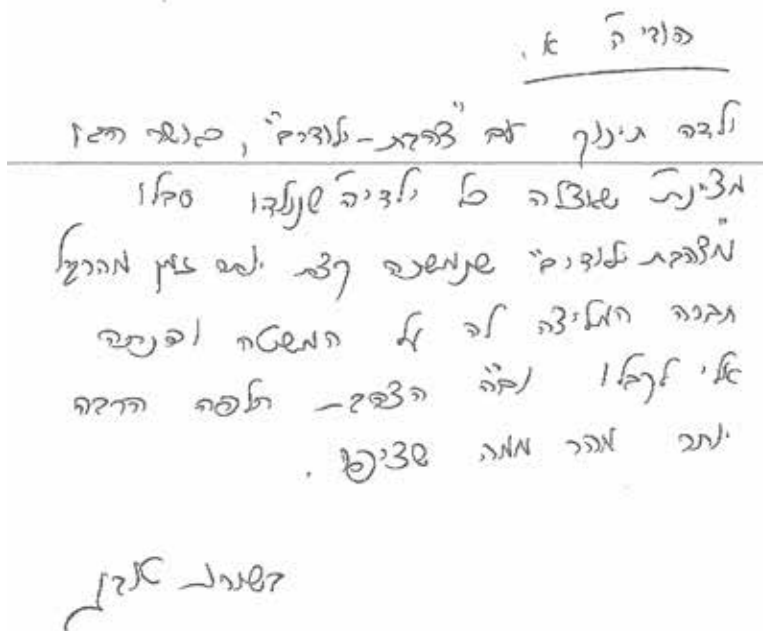 הודיה א.
ולדה תינוק עם "צהבת-ילודים", כאשר היא
מציינת שאצלה כל ילדיה שנולדו סבלו
מ"צהבת ילודים" שנמשכה קצת יותר זמן מהרגיל
חברה המליצה לה על המשטה ופנתה
אלי לקבלו וב"ה הצהבת חלפה הרבה
יותר מהר ממה שציפו.
בשורה